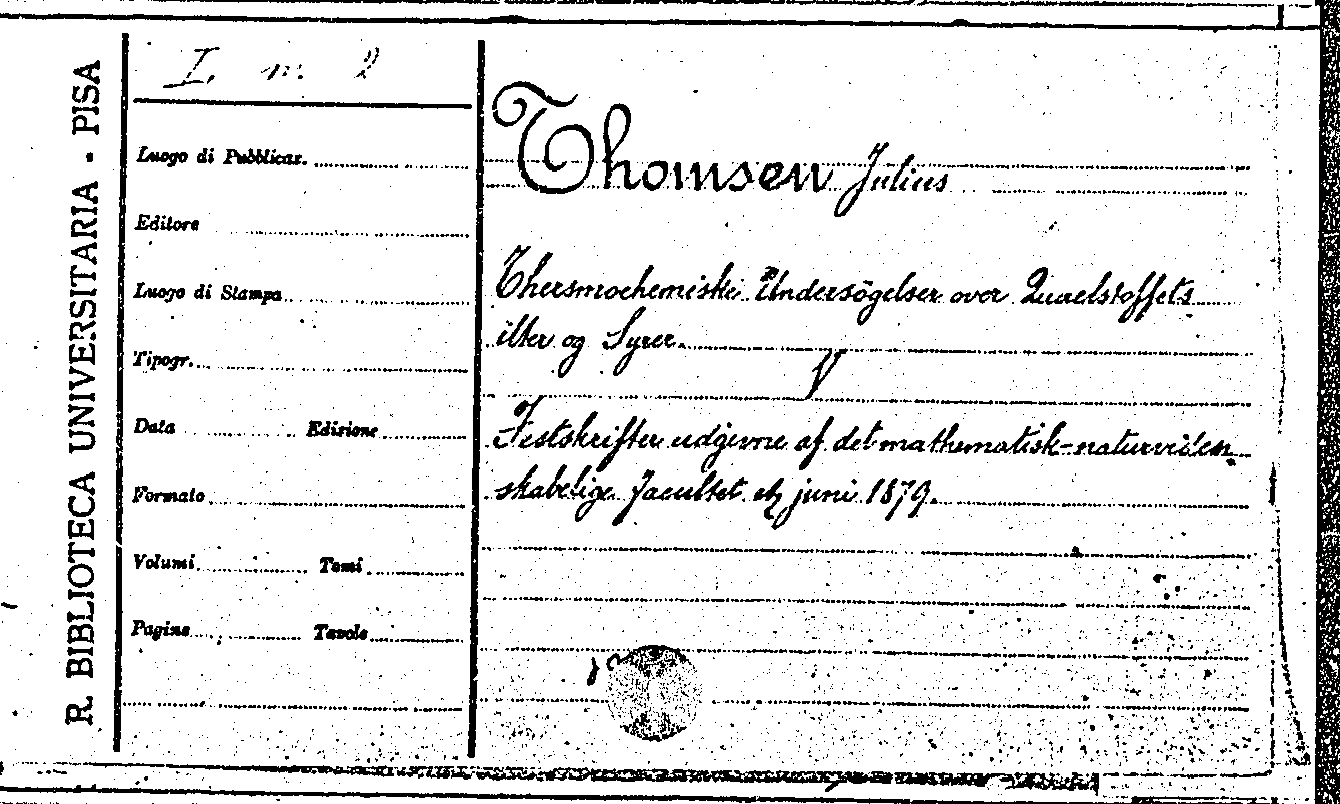 R. BIBLIOTECA UNIVERSITARIA - PISA
I. m. 2
Luogo di Pubblicaz.
Editore
Luogo di Stampa
Tipogr.
Data Edizione
Formato
Volumi Tomi
Pagine Tavole
Thomsen Julius
Thersmochemiske Undersögelser over Quaelstoffets
ilter og Syrer.
V
Festskrifter udgivne af det mathematisk-naturviden
skabelige Facultet etz juni 1879.